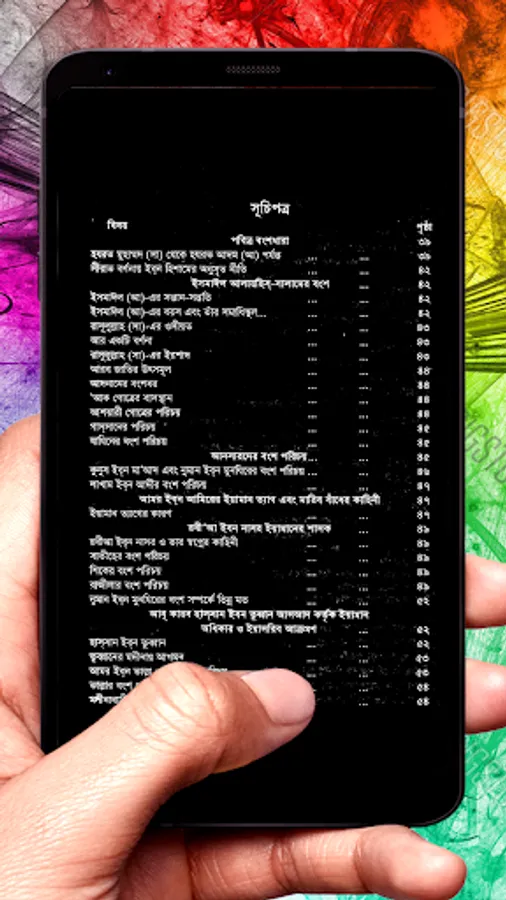 সূচিপত্র
বিষয় পৃষ্ঠা
পবিত্র বংশধারা ৩৯
হযরত মুহাম্মদ (সা) থেকে হযরত আদম (আ) পর্যন্ত ... ... ৩৯
সীরাত বর্ণনায় ইব্‌ন হিশামের অনুসৃত নীতি ... ... ৪২
ইসমাঈল আলায়হিস্-সালামের বংশ ... ৪২
ইসমাঈল (আ)-এর সন্তান-সন্ততি ... ... ৪২
ইসমাঈল (আ)-এর বয়স এবং তাঁর সমাধিস্থল... ... ৪২
রাসূলুল্লাহ্ (সা)-এর ওসীয়ত ... ... ৪৩
আর একটি বর্ণনা ... ... ৪৩
রাসূলুল্লাহ্ (সা)-এর ইরশাদ ... ... ৪৩
আরব জাতির উৎসমূল ... ... ৪৪
আদনানের বংশধর ... ... ৪৪
'আক গোত্রের বাসস্থান ... ... ৪৪
আশআরী গোত্রের পরিচয় ... ... ৪৪
গাস্‌সানের পরিচয় ... ... ৪৫
মাযিনের বংশ পরিচয় ... ... ৪৫
আনসারদের বংশ পরিচয় ... ... ৪৫
কুনুস ইব্‌ন মা'আদ এবং নুমান ইব্‌ন মুনযিরের বংশ পরিচয় ... ... ৪৬
লাখাম ইব্‌ন আদীর বংশ পরিচয় ... ... ৪৭
আমর ইব্‌ন আমিরের ইয়ামান ত্যাগ এবং মারিব বাঁধের কাহিনী ৪৭
ইয়ামান ত্যাগের কারণ ... ... ৪৭
রবী'আ ইবন নাসর ইয়ামানের শাসক ... ৪৯
রবীআ ইব্‌ন নাসর ও তার স্বপ্নের কাহিনী ... ... ৪৯
সাতীহের বংশ পরিচয় ... ... ৪৯
শিকের বংশ পরিচয় ... ... ৪৯
বাজীলার বংশ পরিচয় ... ... ৪৯
নুমান ইব্‌ন মুনযিরের বংশ সম্পর্কে ভিন্ন মত ... ... ৫২
আবূ কারব হাস্‌সান ইবন তুব্বান আসআদ কর্তৃক ইয়ামান
অধিকার ও ইয়াসরিব আক্রমণ ... ৫২
হাস্‌সান ইব্‌ন তুব্বান ... ... ৫২
তুব্বানের মদীনায় আগমন ... ... ৫৩
আমর ইব্‌ন তাল্লা ... ৫৩
তাল্লার বংশ ... ৫৪
... ৫৪